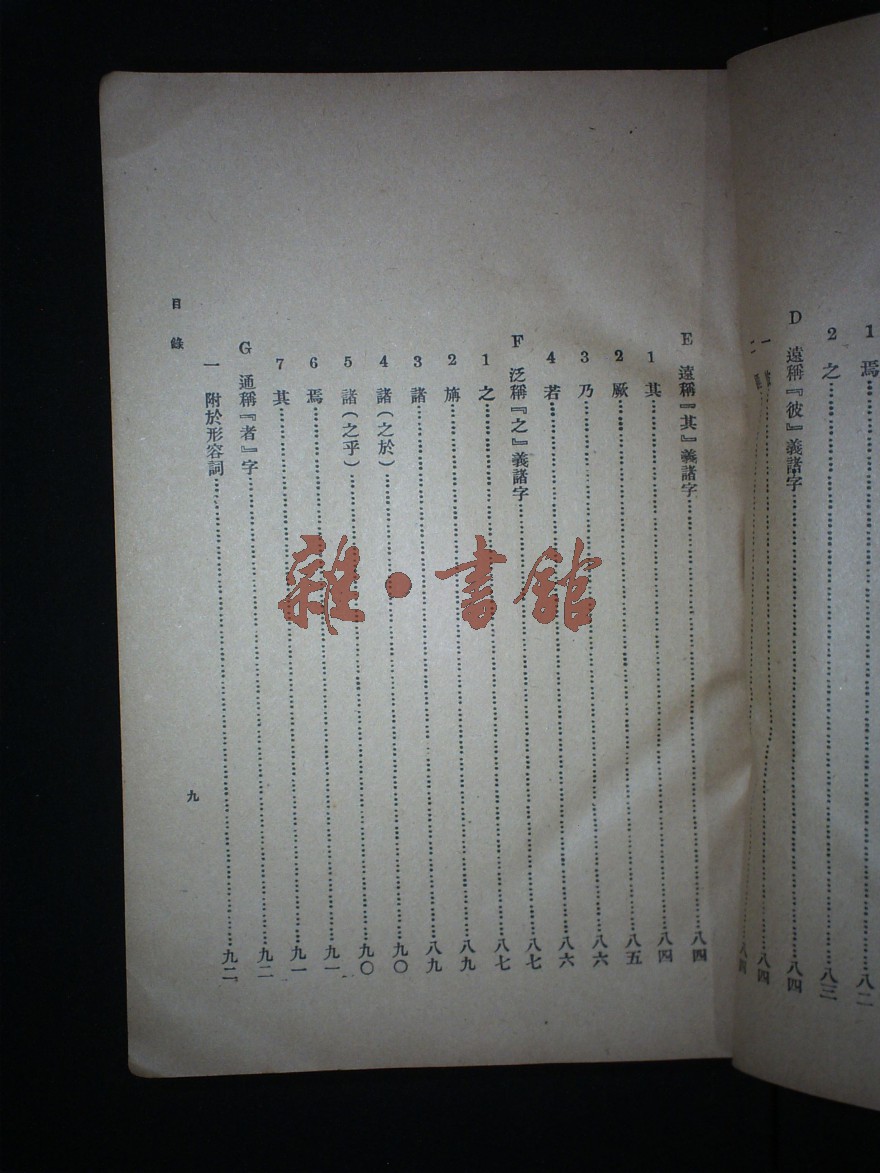 1 焉……八二
2 之……八三
D 遠稱『彼』義諸字……八四
一……八四
二……八四
E 遠稱『其』義諸字……八四
1 其……八四
2 厥……八五
3 乃……八六
4 若……八六
F 泛稱『之』義諸字……八七
1 之……八七
2 旃……八九
3 諸……八九
4 諸(之於)……九〇
5 諸(之乎)……九〇
6 焉……九一
7 其……九一
G 通稱『者』字……九二
一 附於形容詞……九二
目錄
九
雜·書館